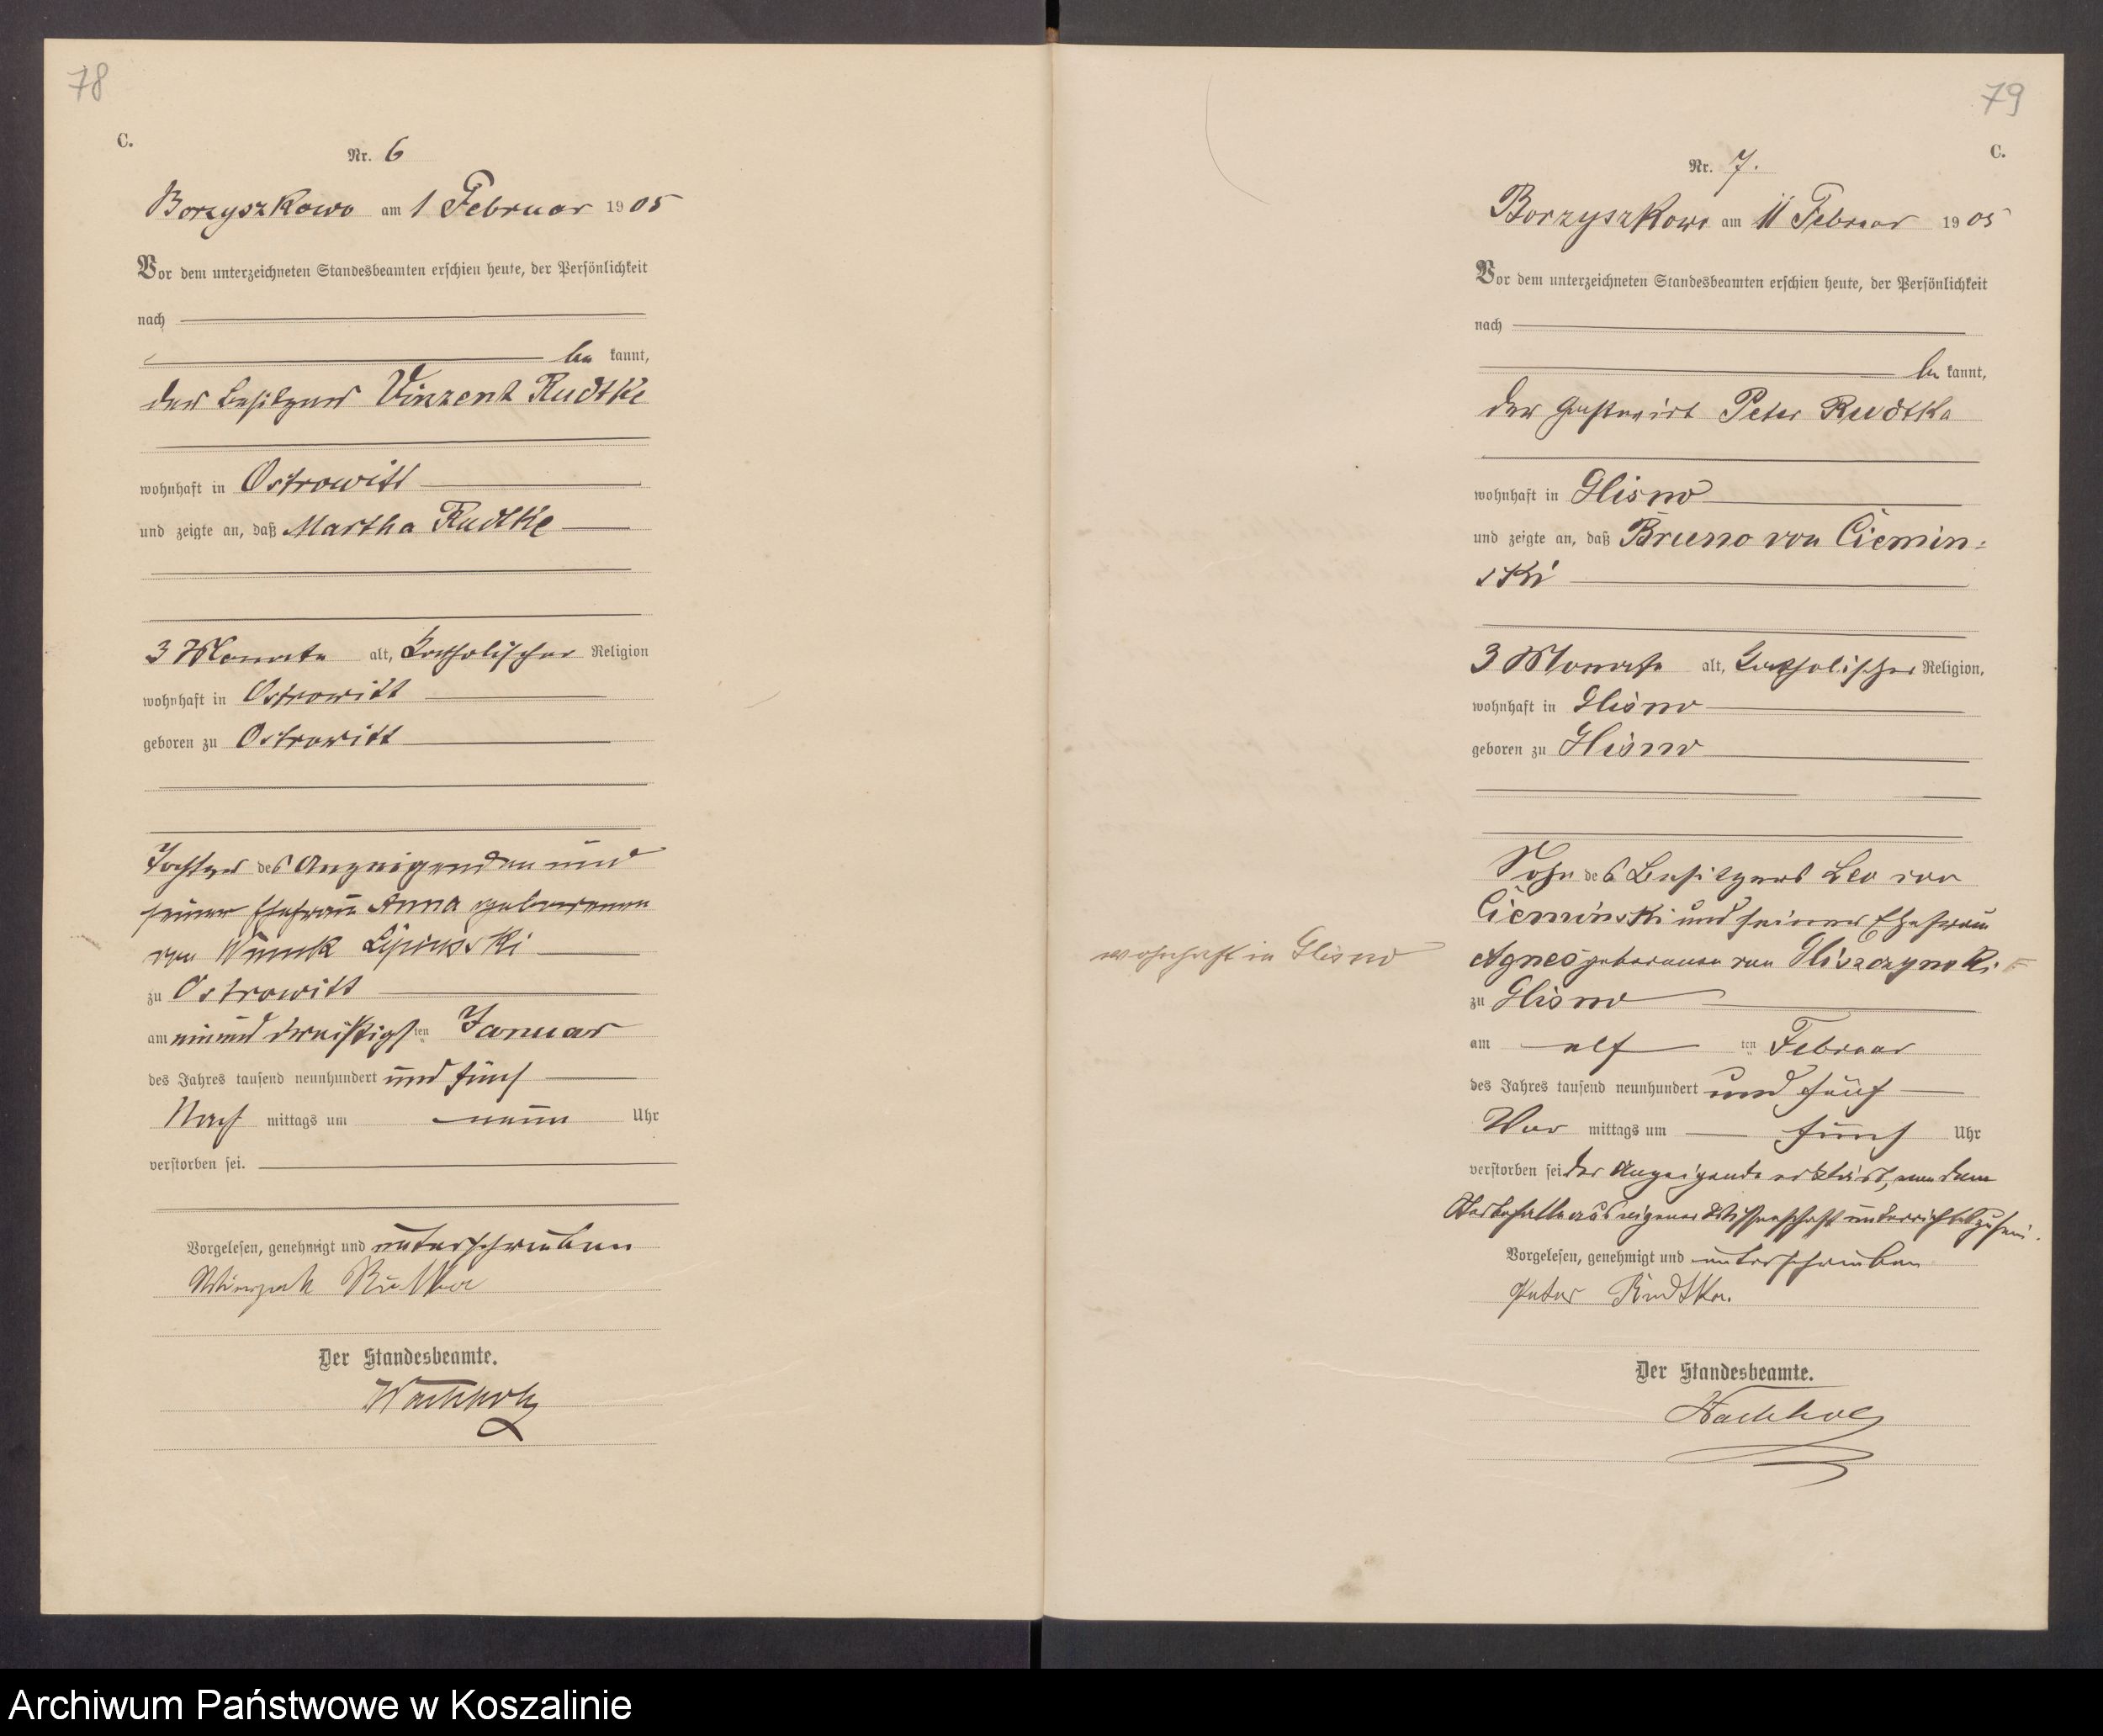 78
C.
Nr. 6
Borzyszkowo am 1 Februar 1905
Vor dem unterzeichneten Standesbeamten erschien heute, der Persönlichkeit
nach
be kannt,
der Besitzer Vinzent Rudtke
wohnhaft in Ostrowitt
und zeigte an, daß Martha Rudtke
3 Monate alt, katholischer Religion
wohnhaft in Ostrowitt
geboren zu Ostrowitt
Tochter des Anzeigenden und
seiner Ehefrau Anna geborenen
von Wnuk Lipinski
zu Ostrowitt
am einund dreißigsten Januar
des Jahres tausend neunhundert und fünf
Nach mittags um neun Uhr
verstorben sei.
Vorgelesen, genehmigt und unterschrieben
Der Standesbeamte.
Wachholz
79
C.
Nr. 7.
Borzyszkowo am 11 Februar 1905
Vor dem unterzeichneten Standesbeamten erschien heute, der Persönlichkeit
nach
be kannt,
der Gastwirt Peter Rudtke
wohnhaft in Glisno
und zeigte an, daß Bruno von Ciemin=
ski
3 Monate alt, katholischer Religion,
wohnhaft in Glisno
geboren zu Glisno
Sohn des Besitzers Leo von
Cieminski und seiner Ehefrau
Agnes geborenen von Gliszczynski
wohnhaft in Glisno
zu Glisno
am elf ten Februar
des Jahres tausend neunhundert und fünf
Vor mittags um fünf Uhr
verstorben sei. Der Anzeigende erklärt, von dem
Sterbefalle aus eigener Wissenschaft unterrichtet zu sein.
Vorgelesen, genehmigt und unterschrieben
Peter Rudtke.
Der Standesbeamte.
Wachholz
Archiwum Państwowe w Koszalinie